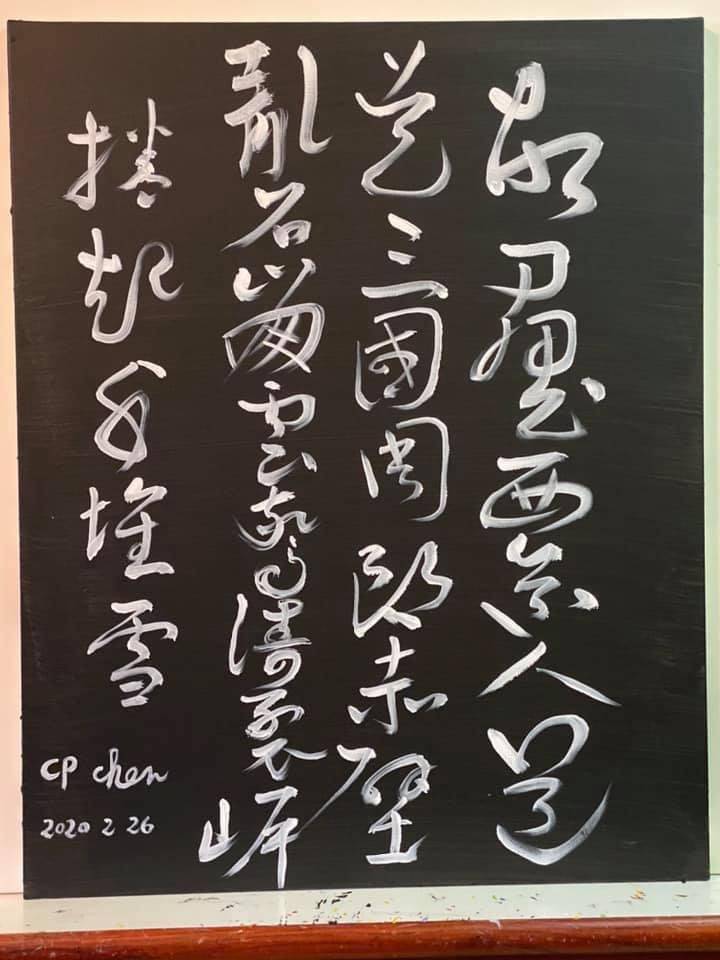 故壘西邊人道
是三國周郎赤壁
亂石崩雲驚濤裂岸
捲起千堆雪
CP chen
2020 2 26